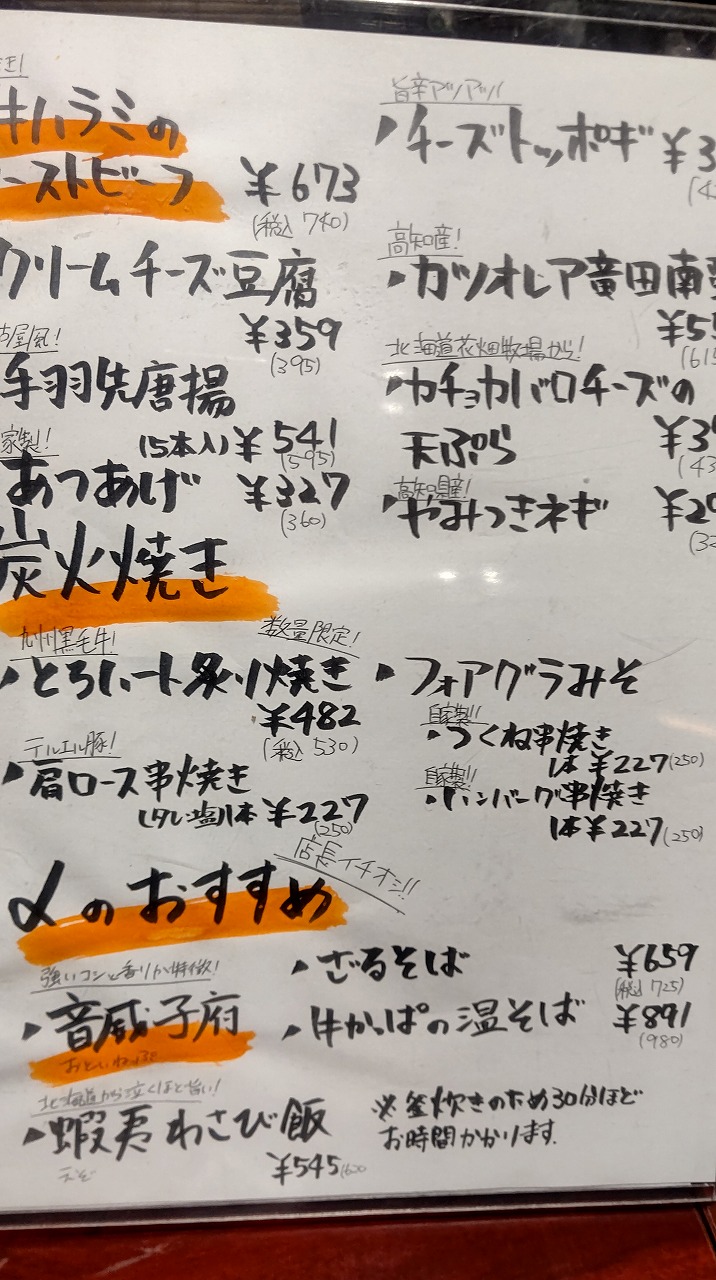 牛ハラミの
ーストビーフ ¥673
(税込 740)
クリームチーズ豆腐
¥359
(395)
古屋風!
手羽先唐揚
(5本入) ¥541
(595)
家製!
あつあげ ¥327
(360)
旨辛アツアツ!
・チーズトッポギ ¥3
高知産!
・カツオレア竜田南蛮
¥55
(615
北海道花畑牧場から!
・カチョカバロチーズの
天ぷら ¥39
(43
高知県産!
・やみつきネギ ¥29
(32
炭火焼き
九州黒毛牛! 数量限定!
・とろハート炙り焼き
¥482
(税込 530)
テルエル豚!
・肩ロース串焼き
(タレ・塩)1本 ¥227
(250)
・フォアグラみそ
自家製!!
・つくね串焼き
1本 ¥227(250)
自家製!!
・ハンバーグ串焼き
1本 ¥227(250)
αのおすすめ 店長イチオシ!!
強いコシと香りが特徴!
・音威子府
おといねっぷ
・ざるそば ¥659
(税込 725)
・牛かっぱの温そば ¥891
(980)
北海道から泣くほど旨い!
・蝦夷わさび飯
えぞ
¥545(600
※釜炊きのため30分ほど
お時間かかります.